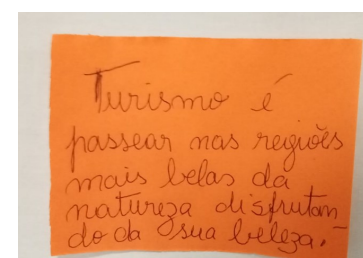 Turismo é
passear nas regiões
mais belas da
natureza disfrutan
do da sua beleza.